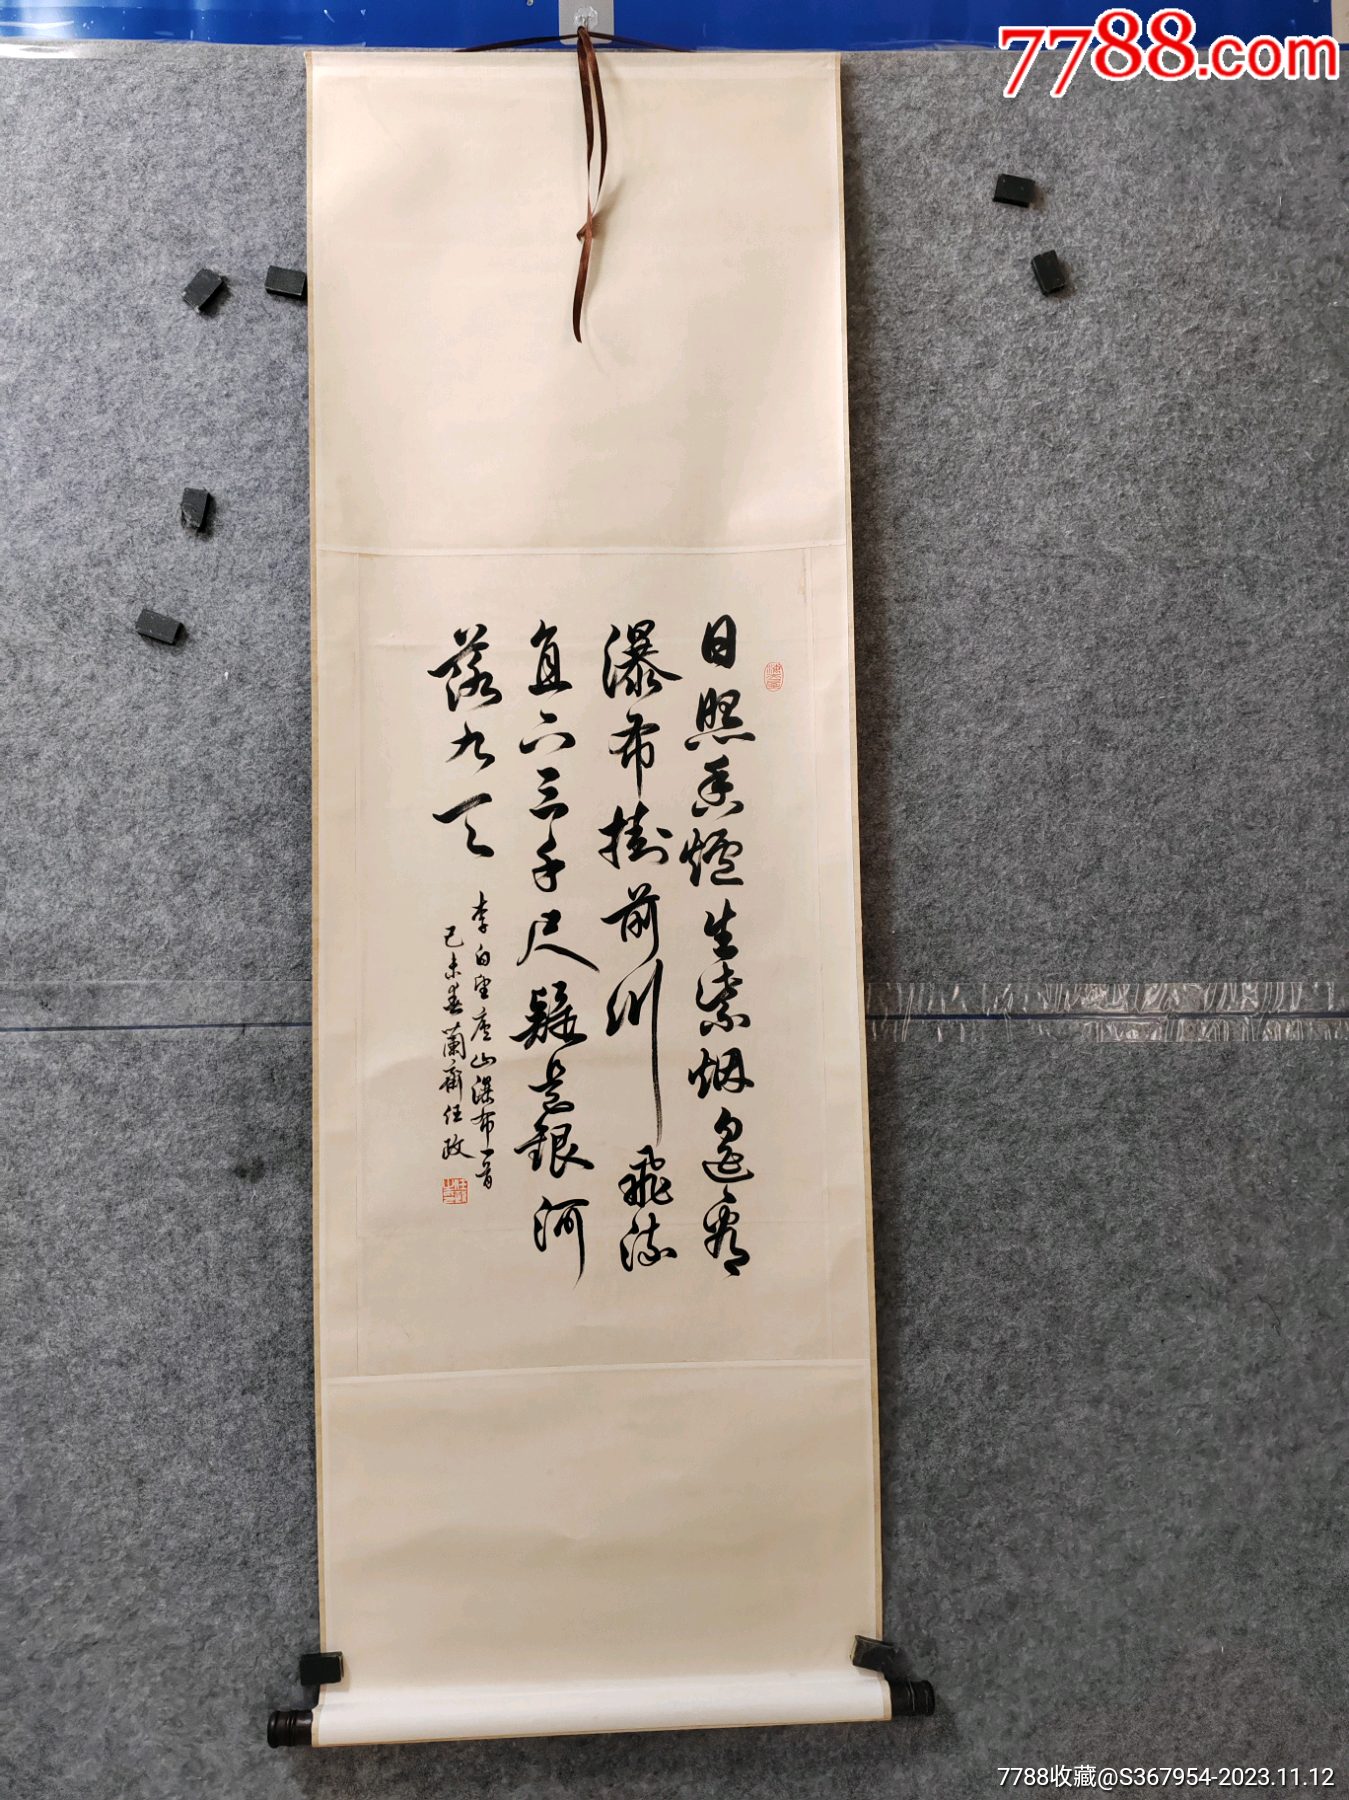 7788.com
日照香爐生紫烟遥看
瀑布掛前川飛流
直下三千尺疑是銀河
落九天
李白望庐山瀑布一首
己未春蘭齋任政
7788收藏@S367954-2023.11.12